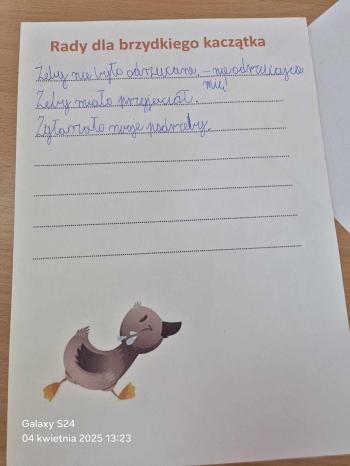 Rady dla brzydkiego kaczątka
Żeby nie było odrzucane, – nie odrzucajcie
mnie!
Żeby miało przyjaciół.
Zgłaszało swoje potrzeby.
Galaxy S24
04 kwietnia 2025 13:23